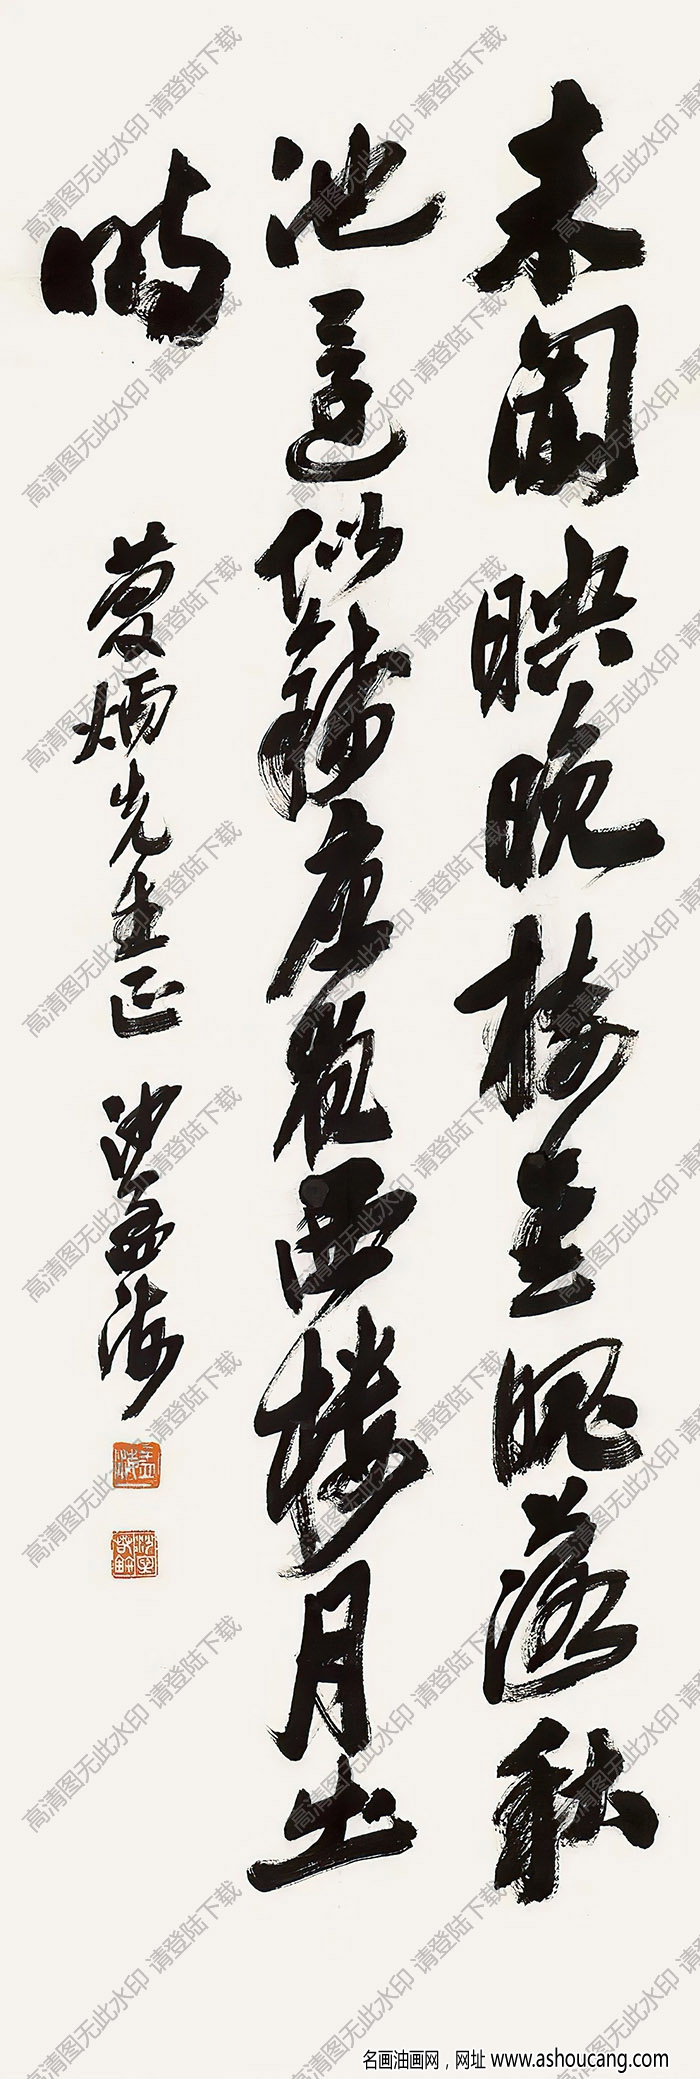 朱閣映晚樹金魄落秋
池還似錢唐夜西樓月出
時
炳先生正 沙孟海
高清图无此水印 请登陆下载
名画油画网，网址 www.ashoucang.com